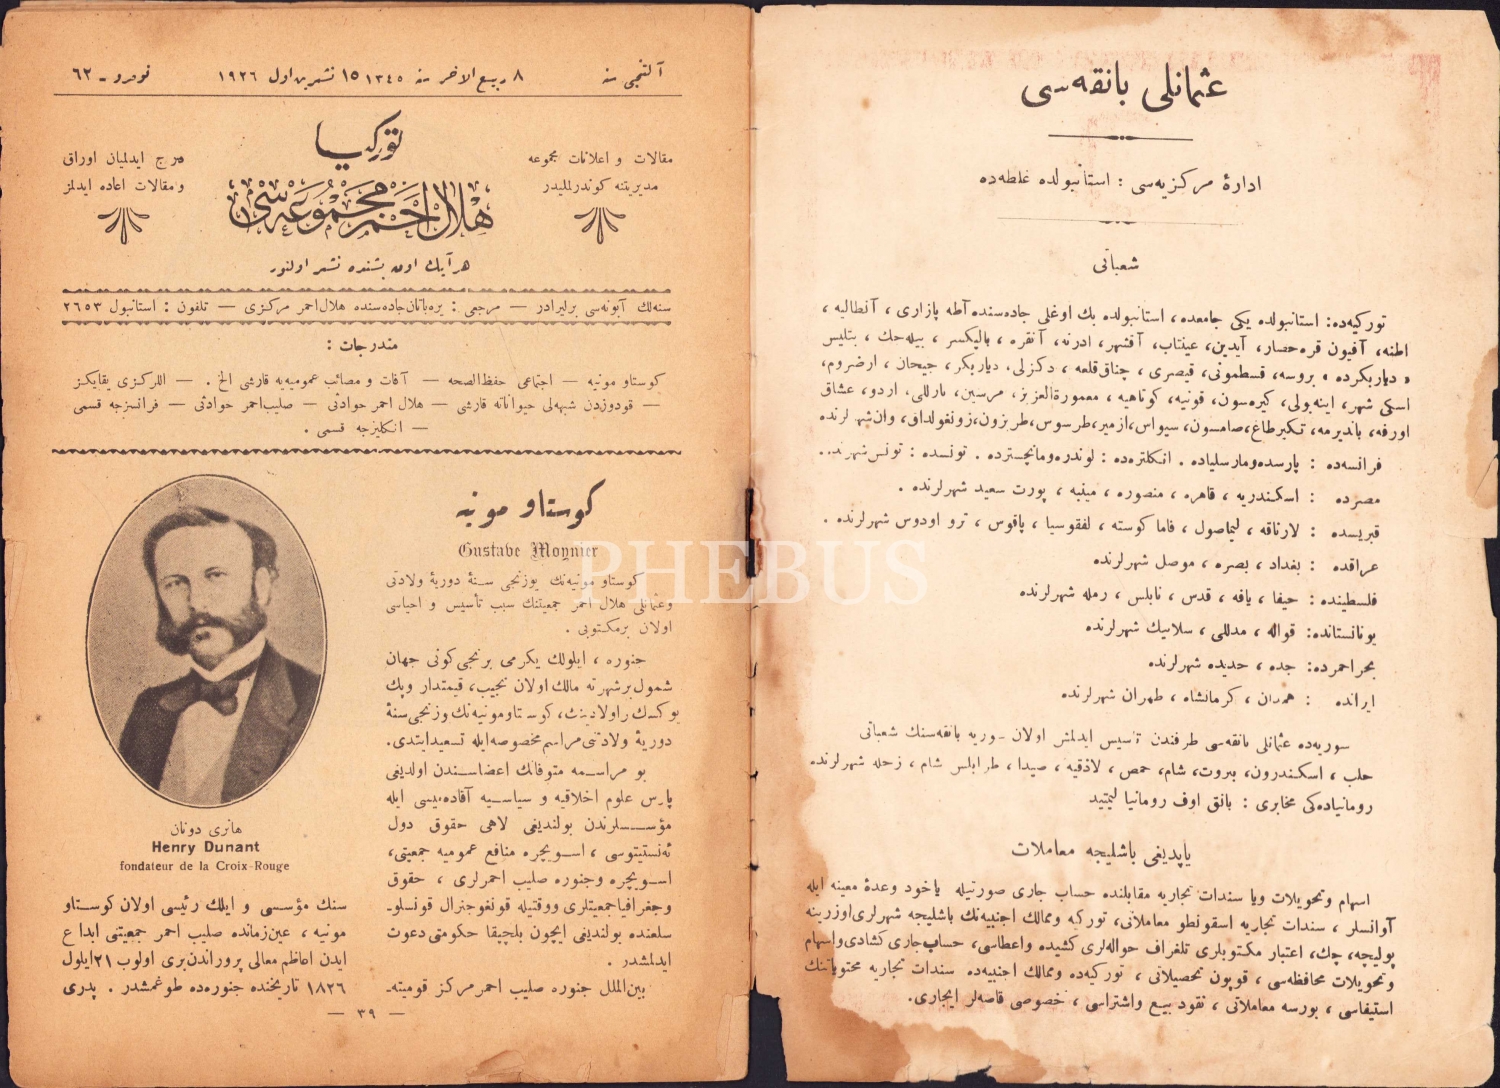 آلتنجی سنه
٨ ربيع الآخر سنه ١٣٤٥
١٥ تشرين اول ١٩٢٦
نومرو ـ ٦٢
مقالات و اعلانات مجموعه
مديريتنه كوندرلمليدر
توركيا
هلال احمر مجموعه‌سی
درج ايدلميان اوراق
و مقالات اعاده ايدلمز
هر آيك اون بشنده نشر اولنور
سنه‌لك آبونه‌سی بر ليرادر — مرجعی : يره‌باتان جاده‌سنده هلال‌احمر مركزی — تلفون : استانبول ٢٦٥٣
مندرجات :
كوستاو مونيه — اجتماعی حفظ‌الصحه — آفات و مصائب عموميه‌يه قارشی الخ . — اللركزی يقايكز
— قودوزدن شبهه‌لی حيواناته قارشی — هلال احمر حوادثی — صليب‌احمر حوادثی — فرانسزجه قسمی
— انكليزجه قسمی .
كوستاو مونيه
Gustave Moynier
كوستاو مونيه‌نك يوزنجی سنۀ دوريۀ ولادتی
وعثمانلی هلال احمر جمعيتنك سبب تأسيس و احياسی
اولان برمكتوبی .
جنوره ، ايلولك يكرمی برنجی كونی جهان
شمول برشهرته مالك اولان نجيب، قيمتدار وپك
يوكسك راولادينك، كوستاومونيه‌نك وزنجی سنۀ
دوريۀ ولادتنی مراسم مخصوصه ايله تسعيدايتدی.
بو مراسمه متوفانك اعضاسندن اولديغی
پارس علوم اخلاقيه و سياسيه آقاده‌ميسی ايله
مؤسسلرندن بولنديغی لاهی حقوق دول
ئه‌نستيتوسی ، اسويچره منافع عموميه جمعيتی،
اسويچره وجنوره صليب احمرلری ، حقوق
وجغرافياجمعيتلری ووقتيله قونغوجنرال قونسلوـ
سلغنده بولنديغی ايچون بلچيقا حكومتی دعوت
ايدلمشدر .
بين‌الملل جنوره صليب احمرمركز قوميته‌ـ
هانری دونان
Henry Dunant
fondateur de la Croix-Rouge
سنك مؤسسی و ايلك رئيسی اولان كوستاو
مونيه ، عين‌زمانده صليب احمر جمعيتنی ابداع
ايدن اعاظم معالی پروراندن‌بری اولوب ٢١ايلول
١٨٢٦ تاريخنده جنوره‌ده طوغمشدر . پدری
— ٣٩ —
عثمانلی بانقه‌سی
ادارۀ مركزيه‌سی : استانبولده غلطه‌ده
شعباتی
توركيه‌ده: استانبولده يكی جامعده، استانبولده بك اوغلی جاده‌سنده آطه پازاری ، آنطاليه ،
اطنه، آفيون قره‌حصار، آيدين، عينتاب، آقشهر، ادرنه، آنقره ، باليكسر ، بيله‌جك ، بتليس
، بروسه، قسطمونی، قيصری ، چناق‌قلعه ، دكزلی، ديار بكر، جيحان ، ارضروم،
اسكی شهر، اينه‌بولی، كيره‌سون، قونيه، كوتاهيه ، معمورةالعزيز، مرسين، نازللی، اردو، عشاق
اورفه، بانديرمه، تكيرطاغ،صامسون، سيواس،ازمير،طرسوس،طربزون،زونغولداق، وان‌شهرلرنده
فرانسه‌ده : پارسده‌ومارسلياده . انكلتره‌ده : لوندره‌ومانچسترده . تونسده : تونس‌شهرنده.
مصرده : اسكندريه ، قاهره ، منصوره ، مينيه ، پورت سعيد شهرلرنده .
قبريسده : لارناقه ، ليماصول ، فاما كوسته ، لفقوسيا ، پافوس ، ترو اودوس شهرلرنده .
عراقده : بغداد ، بصره ، موصل شهرلرنده
فلسطينده : حيفا ، يافه ، قدس ، نابلس ، رمله شهرلرنده
يونانستانده: قواله ، مدللی ، سلانيك شهرلرنده
بحراحمرده: جده ، حديده شهرلرنده
ايرانده : همدان ، كرمانشاه ، طهران شهرلرنده
سوريه‌ده عثمانلی بانقه‌سی طرفندن تأسيس ايدلمش اولان سوريه بانقه‌سنك شعباتی
حلب ، اسكندرون، بيروت، شام، حمص ، لاذقيه ، صيدا ، طرابلس شام ، زحله شهرلرنده
رومانياده‌كی مخابری : بانق اوف رومانيا ليميتيد
ياپديغی باشليجه معاملات
اسهام وتحويلات ويا سندات تجاريه مقابلنده حساب جاری صورتيله ياخود وعدۀ معينه ايله
آوانسلر ، سندات تجاريه اسقونطو معاملاتی، توركيه وممالك اجنبيه‌نك باشليجه شهرلری‌اوزرينه
پوليچه، چك، اعتبار مكتوبلری تلغراف حواله‌لری كشيده واعطاسی، حساب‌جاری كشادی‌واسهام
وتحويلات محافظه‌سی ، قوپون تحصيلاتی ، توركيه‌ده وممالك اجنبيه‌ده سندات تجاريه محتوياتنك
استيفاسی ، بورسه معاملاتی ، نقود بيع واشتراسی ، خصوصی قاصه‌لر ايجاری.
PHEBUS